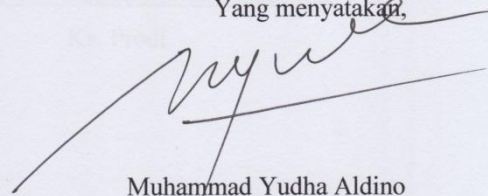 Yang menyatakan,
Muhammad Yudha Aldino